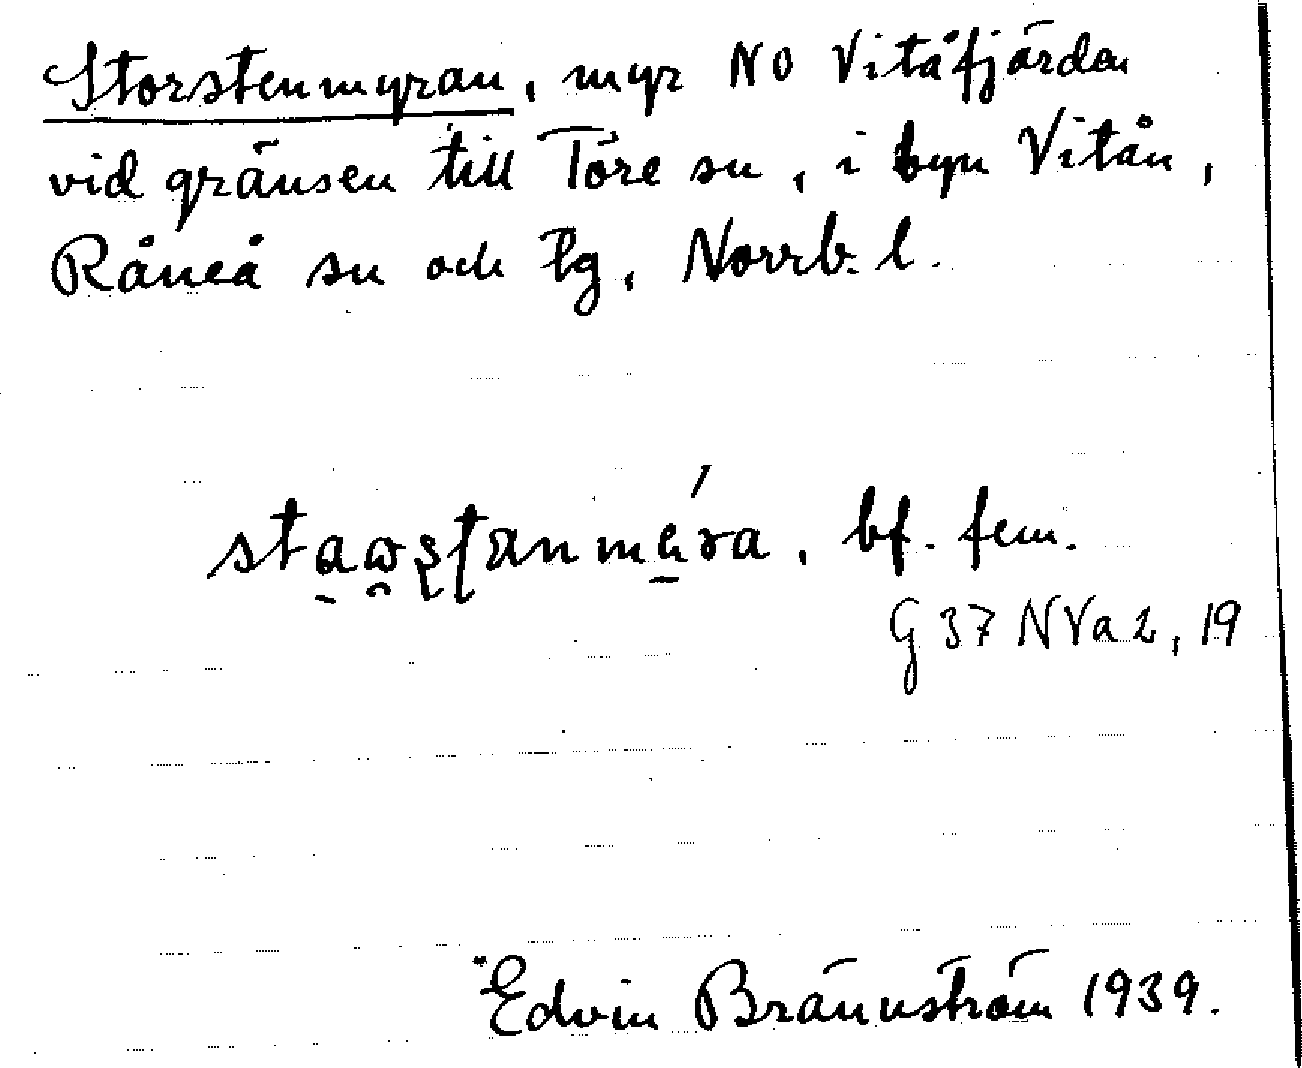 Storstenmyran, myr NO Vitåfjärden
vid gränsen till Töre sn, i byn Vitån,
Råneå sn och tg, Norrb. l.
bf. fem.
G 37 NVa2, 19
Edvin Brännström 1939.